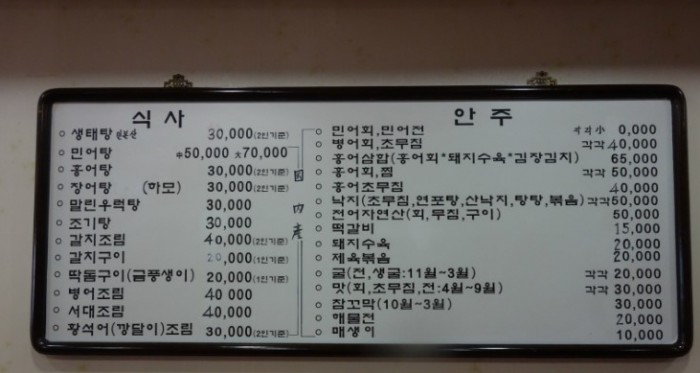 식사
생태탕 30,000(2인기준)
민어탕 中50,000 大70,000
홍어탕 30,000(2인기준)
장어탕 (하모) 30,000(2인기준)
말린우럭탕 30,000
조기탕 30,000
갈치조림 40,000(2인기준)
갈치구이 20,000(1인기준)
딱돔구이(금풍생이) 20,000(1인기준)
병어조림 40 000
서대조림 40,000
황석어(깡달이)조림 30,000(2인기준)
국내産
안주
민어회,민어전 각각小 0,000
병어회,조무침 각각 40,000
홍어삼합(홍어회*돼지수육*김장김치) 65,000
홍어회,찜 각각 50,000
홍어조무침 40,000
낙지(조무침,연포탕,산낙지,탕탕,볶음) 각각50,000
전어자연산(회,무침,구이) 50,000
떡갈비 15,000
돼지수육 20,000
제육볶음 20,000
굴(전,생굴:11월~3월) 각각 20,000
맛(회,조무침,전:4월~9월) 각각 30,000
참꼬막(10월~3월) 30,000
해물전 20,000
매생이 10,000